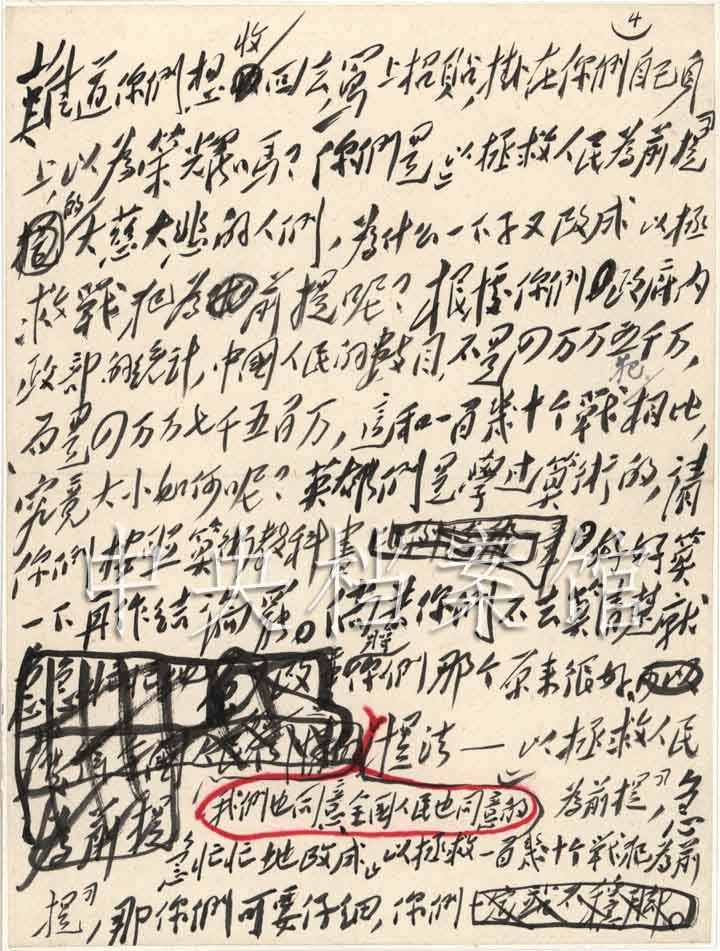 4
難道你們想收回去，寫上招貼，掛在你們自己身
上，以為榮耀嗎？你們是“以拯救人民為前提”
的大慈大悲的人們，為什么一下子又改成以拯
救戰犯為前提呢？根據你們政府內
政部的統計，中國人民的數目，不是四万万五千万，
而是四万万七千五百万，這和一百幾十个戰犯相比，
究竟大小如何呢？英雄們是學过算術的，請
你們按照算術教科書好好算
一下再作結論罷。倘若你們不去算清楚就
急急忙忙地改 將你們那个原来很好，
提法——“以拯救人民
為前提
我們也同意全國人民也同意的
為前提”，急
急忙忙地改成“以拯救一百幾十个戰犯為前
提”，那你們可要仔細，你們
中央档案馆